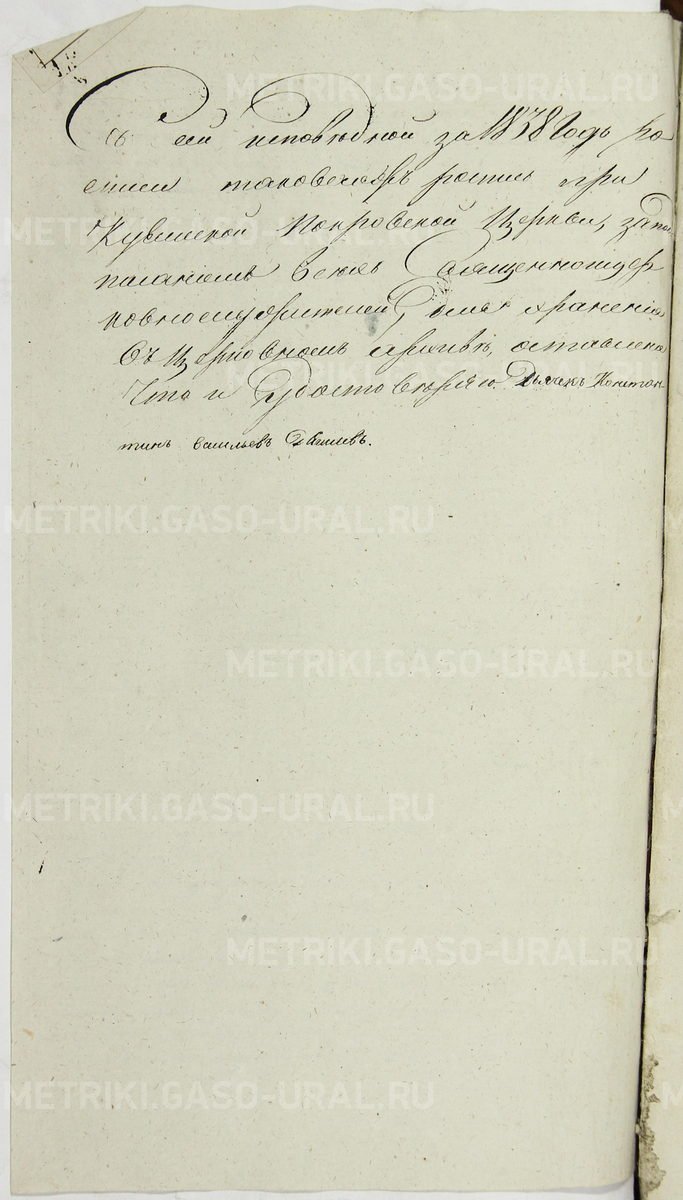 Съ сей исповѣдной за 1838 Годъ ро
списи таковскобръ роспись при
Кувинской Покровской Церкви, за под
писаніемъ всехъ Священноцер
ковнослужителей, для хранения
въ Церковномъ Архивѣ, оставлена
Что и Удостовѣряю Дьячекъ Констан
тинъ Васильевъ
METRIKI.GASO-URAL.RU
METRIKI.GASO-URAL.RU
METRIKI.GASO-URAL.RU
METRIKI.GASO-URAL.RU
METRIKI.GASO-URAL.RU
METRIKI.GASO-URAL.RU
METRIKI.GASO-URAL.RU
METRIKI.GASO-URAL.RU